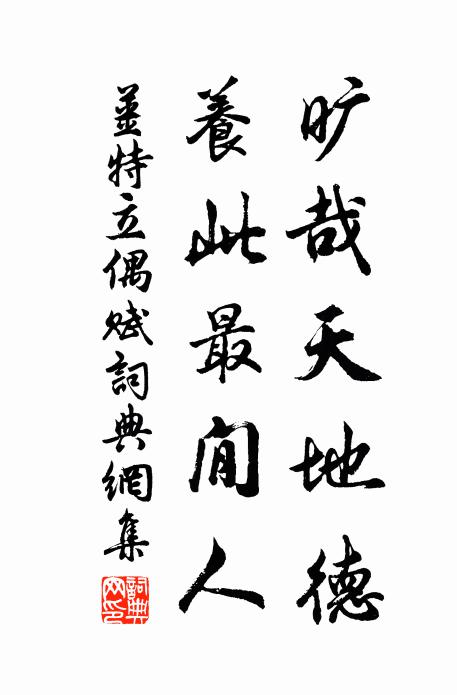 旷哉天地德
養此最閒人
薑特立偶賦詞典網集
詞典
網印